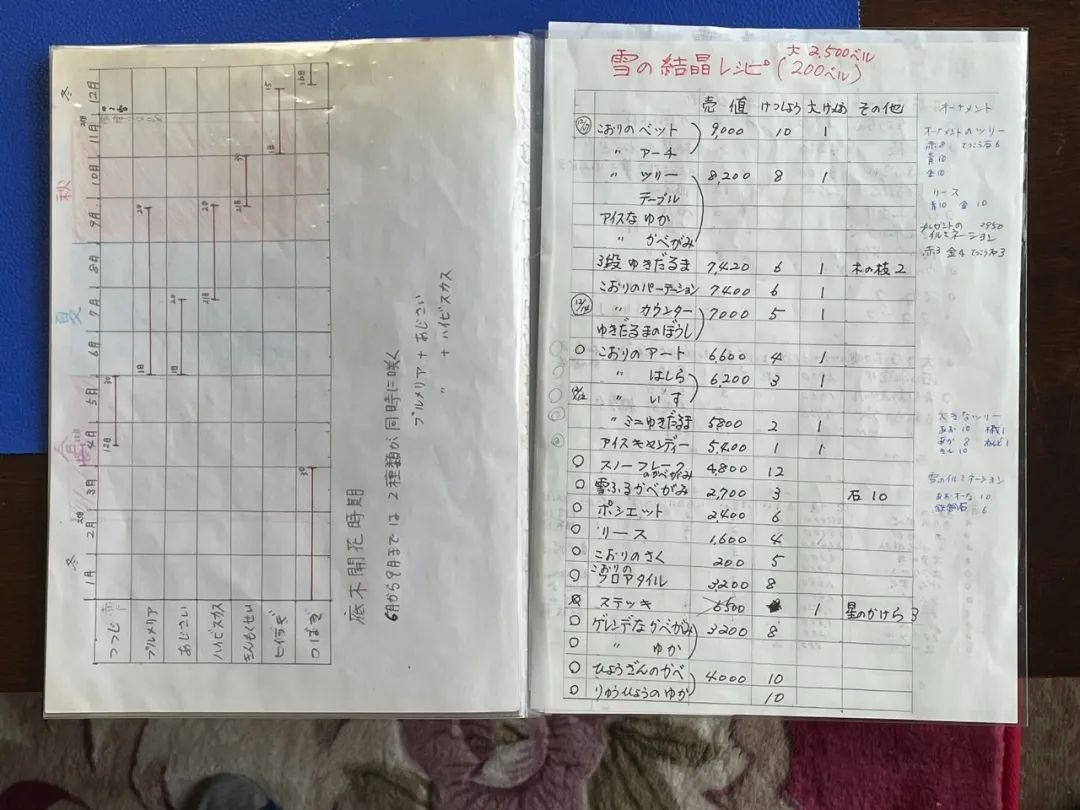 冬 秋 夏 春 冬
12月 11月 10月 9月 8月 7月 6月 5月 4月 3月 2月 1月
つつじ
プルメリア
あじさい
ハイビスカス
きんもくせい
ヒイラギ
つばき
底木開花時期
6月から9月までは2種類が同時に咲く
プルメリア+あじさい
〃 +ハイビスカス
大 2,500ベル
雪の結晶レシピ(200ベル)
売値 けっしょう 大けっしょう その他
こおりのベット 9,000 10 1
〃 アーチ
〃 ツリー 8,200 8 1
テーブル
アイスな ゆか
〃 かべがみ
3段 ゆきだるま 7,420 6 1 木の枝2
こおりのパーテーション 7400 6 1
〃 カウンター 7000 5 1
ゆきだるまのぼうし
○ こおりのアート 6,600 4 1
〃 はしら 6,200 3 1
〃 いす
〃 ミニゆきだるま 5800 2 1
アイスキャンディー 5,400 1 1
○ スノーフレークのかべがみ 4,800 12
○ 雪ふるかべがみ 2,700 3 石10
○ ポシェット 2,400 6
○ リース 1,600 4
○ こおりのさく 200 5
○ こおりのフロアタイル 3,200 8
ステッキ 5500 1 星のかけら3
○ ゲレンデなかべがみ 3200 8
○ 〃 ゆか
○ ひょうざんのかべ 4000 10
○ りゅうひょうのゆか 10
オーナメント
オーナメントのツリー
赤8 てっこう石6
青10
金10
リース
青10 金10
プレゼントの 2950
イルミネーション
赤3 金4 てっこう石3
大きなツリー
あお10
あか8
きん10
雪のイルミネーション
あおオーナ10
鉄鉱石 6